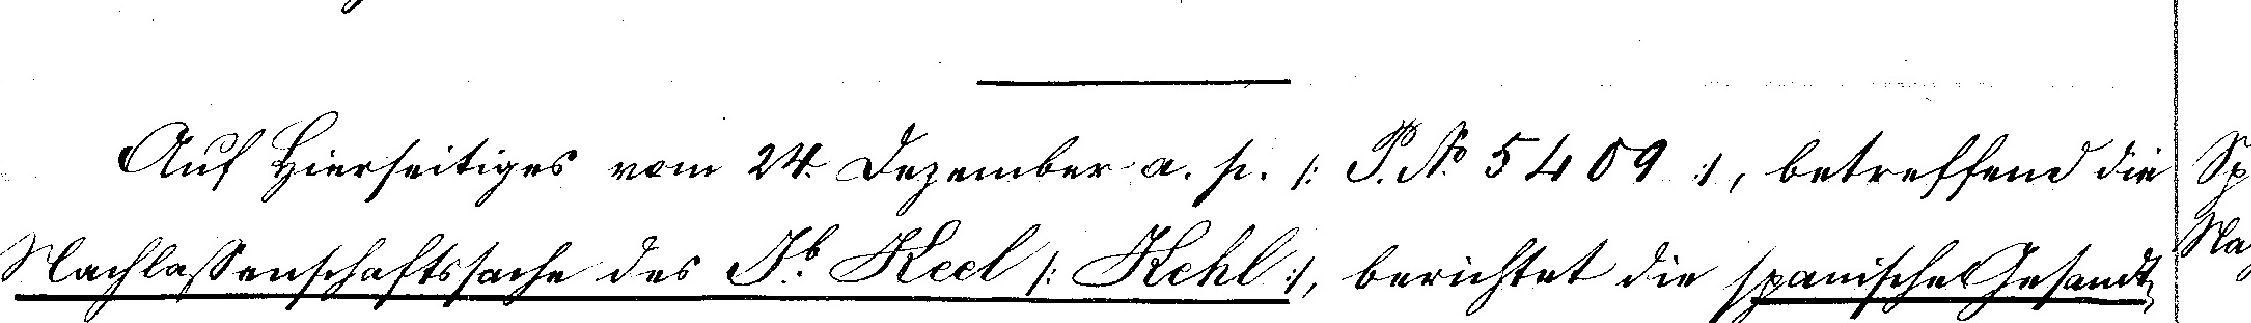 Auf Hierseitiges vom 24. Dezember a. p. /: P. No 5409 :/, betreffend die
Nachlassenschaftssache des Jb. Keel /: Kehl :/, berichtet die spanische Gesandt¬
Sp
Na